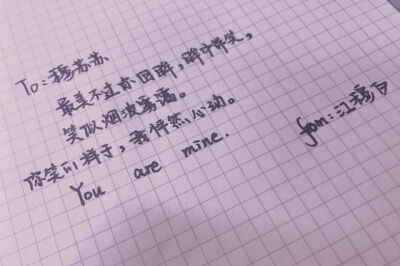 To:穆苏苏
最美不过你回眸,眸中带笑,
笑似烟波寥潘。
你笑的样子,我怦然心动。
You are mine.
from:江穆白